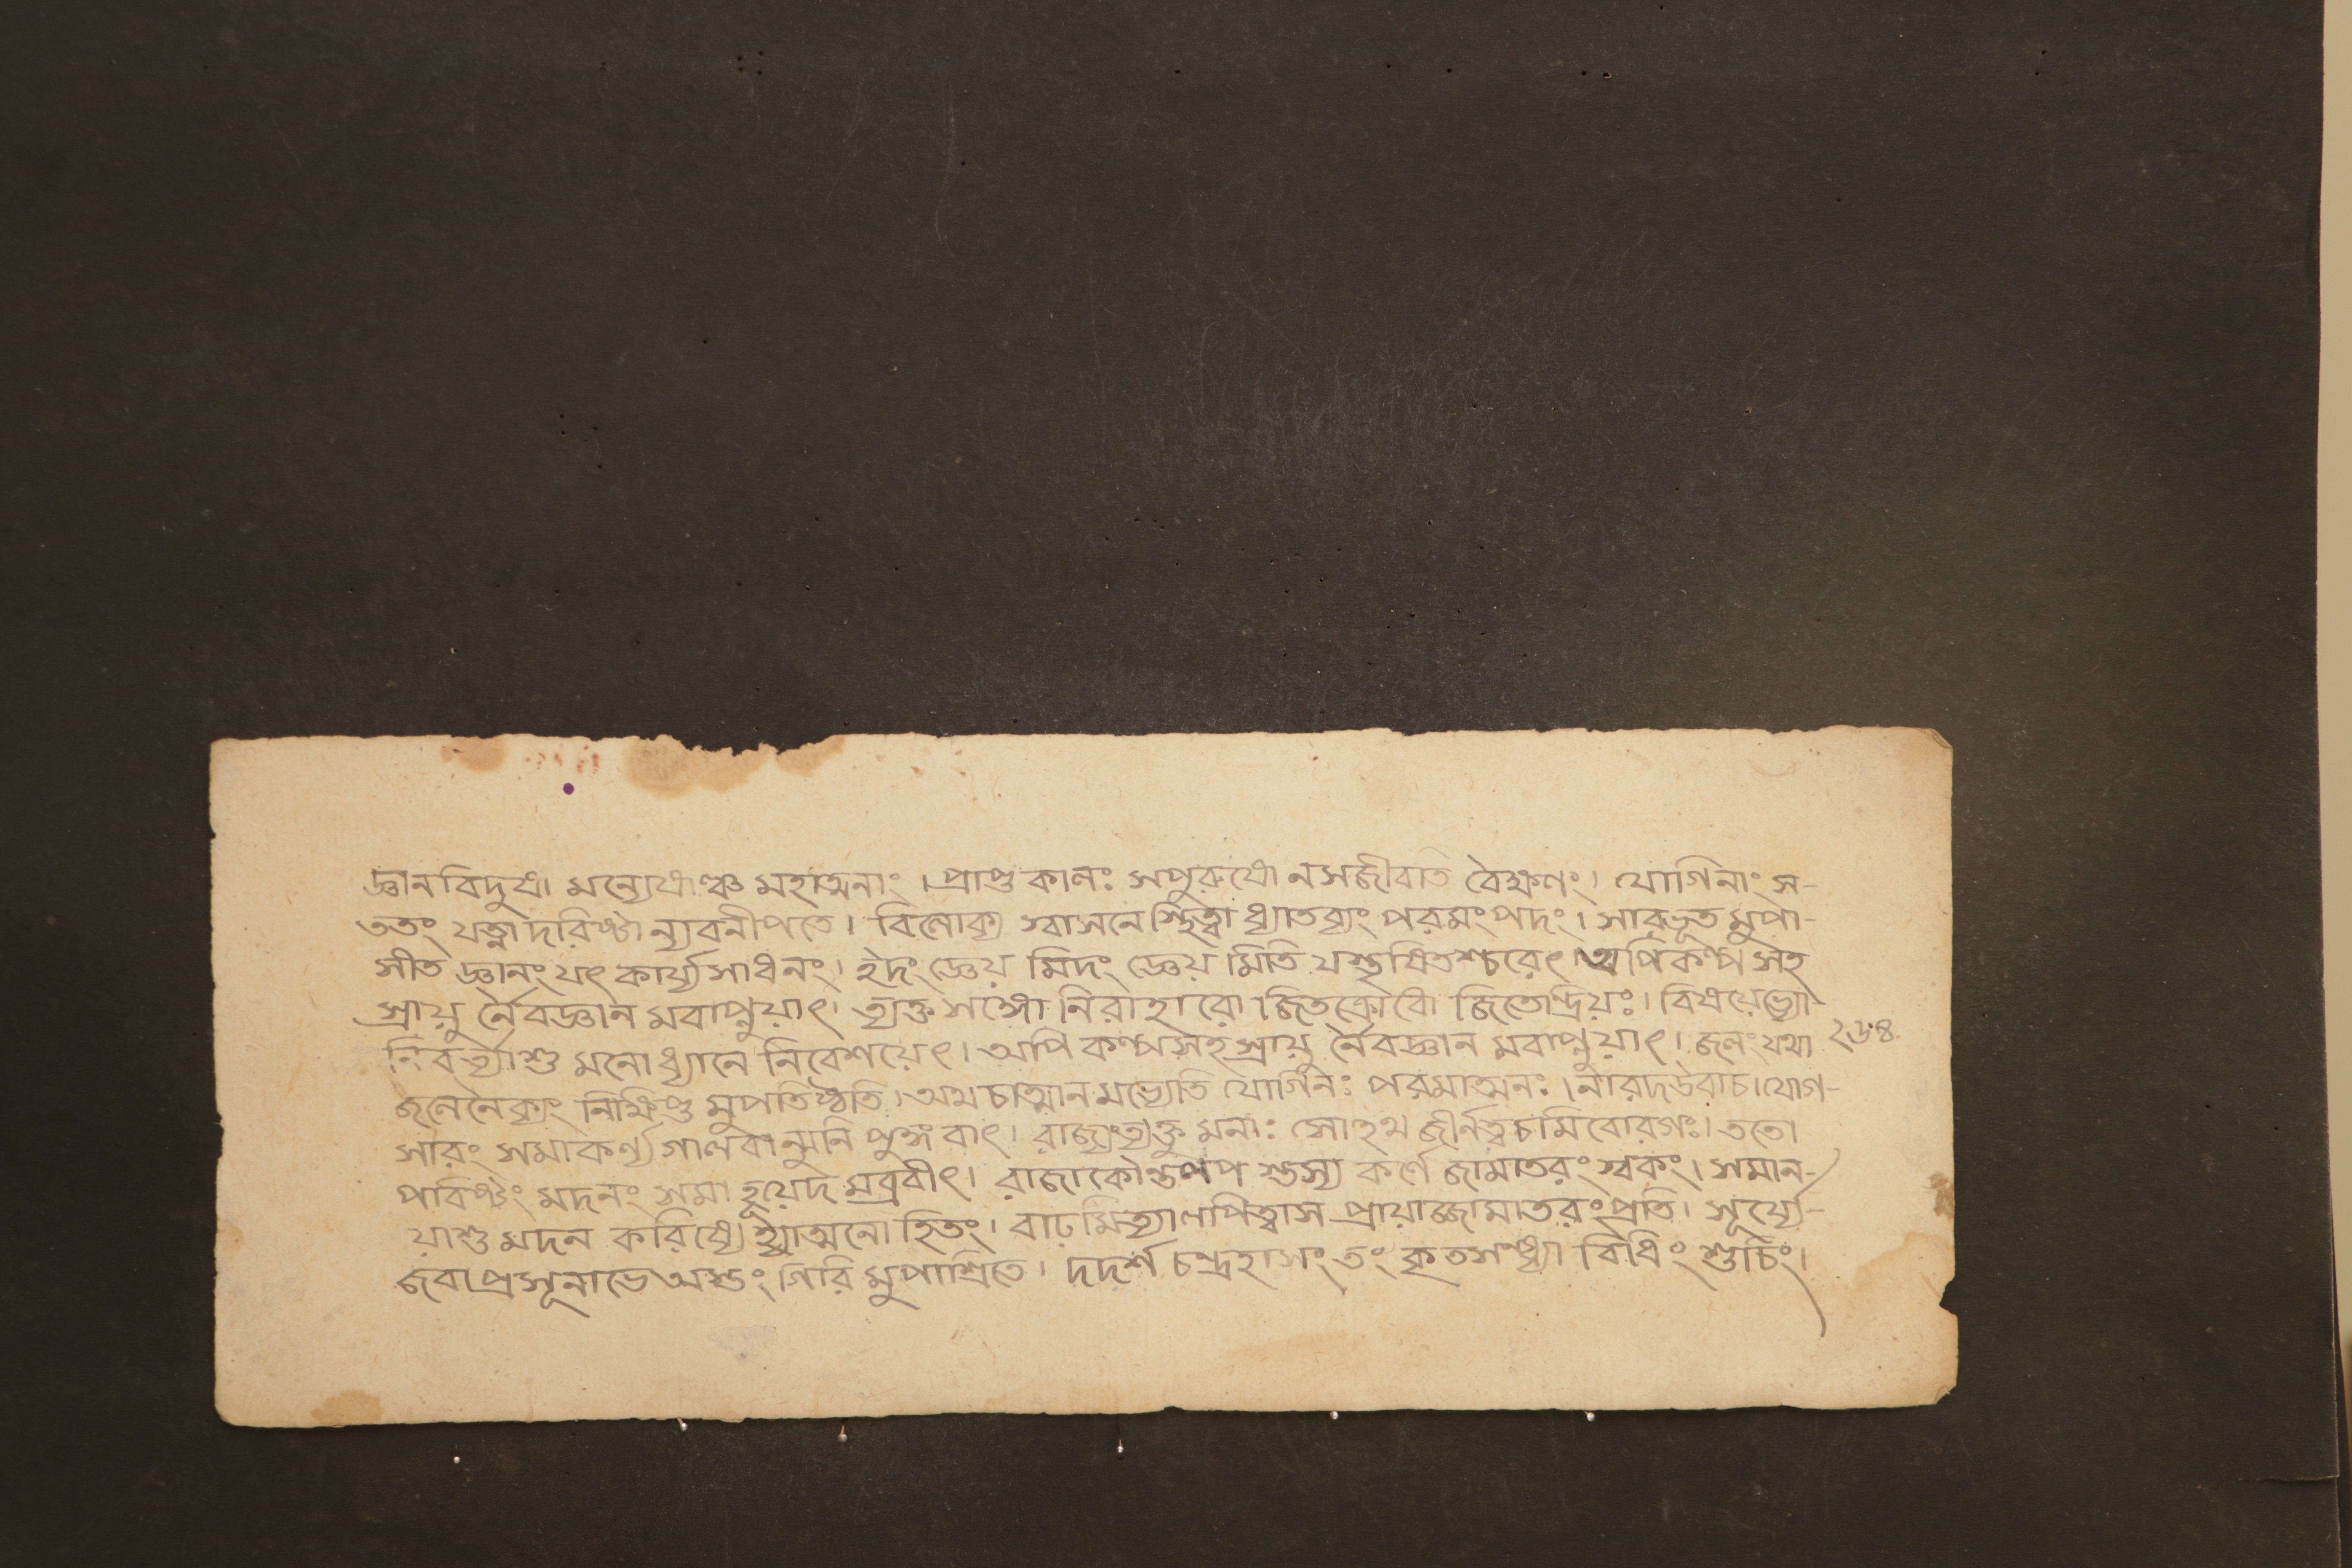 জ্ঞানবিদুষা মন্যেষাঞ্চ মহাত্মনাং । প্রাপ্ত কালঃ সপুরুষো নসজীবতি বৈক্ষণং । যোগিনাং স-
ততং যত্না দরিষ্টা ন্যবনীপতে । বিলোক্য স্বাসনে স্থিত্বা ধ্যাতব্যং পরমং পদং । সারভূত মুপা-
সীত জ্ঞানং যৎ কার্য্যসাধনং । ইদং জ্ঞেয় মিদং জ্ঞেয় মিতি যস্তৃষিতশ্চরেৎ । অপিকল্প সহ
স্রায়ু র্নৈবজ্ঞান মবাপ্নুয়াৎ । ত্যক্ত সঙ্গো নিরাহারো জিতক্রোধো জিতেন্দ্রিয়ঃ । বিষয়েভ্যো
নিবর্ত্যাশু মনোধ্যানে নিবেশয়েৎ । অপি কল্পসহস্রায়ু র্নৈবজ্ঞান মবাপ্নুয়াৎ । জলং যথা ২৬৪
জলেনৈক্যং নিক্ষিপ্ত মুপতিষ্ঠতি । অথ চাত্মান মভ্যেতি যোগিনঃ পরমাত্মনঃ । নারদউবাচ । যোগ-
সারং সমাকর্ণ্য গালবান্মুনি পুঙ্গবাৎ । রাজ্যংত্যক্তু মনাঃ সোহথ জীর্নত্বচমিবোরগঃ । ততো
পবিষ্টং মদনং সমা হূয়েদ মব্রবীৎ । রাজাকৌন্তলপ স্তস্য কর্ণে জামাতরং স্বকং । সমান-
য়াশু মদন করিষ্যে হ্যাত্মনো হিতং । বাঢ়মিত্যালপিত্বাস প্রায়াজ্জামাতরং প্রতি । সূর্য্যে-
জবাপ্রসূনাভে অস্তং গিরি মুপাশ্রিতে । দদর্শ চন্দ্রহাসং তং কৃতসন্ধ্যা বিধিং শুচিং ।